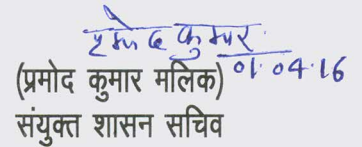 प्रमोद कुमार
01.04.16
(प्रमोद कुमार मलिक)
संयुक्त शासन सचिव